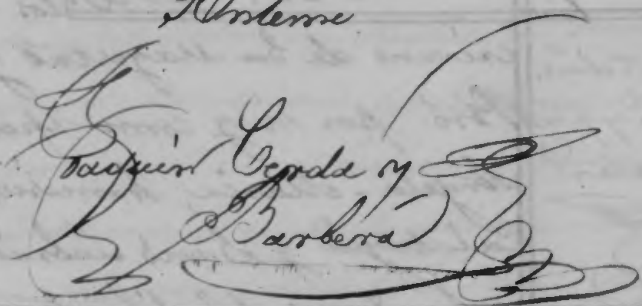 Ante mi
Joaquín Cerdá y
Barberá